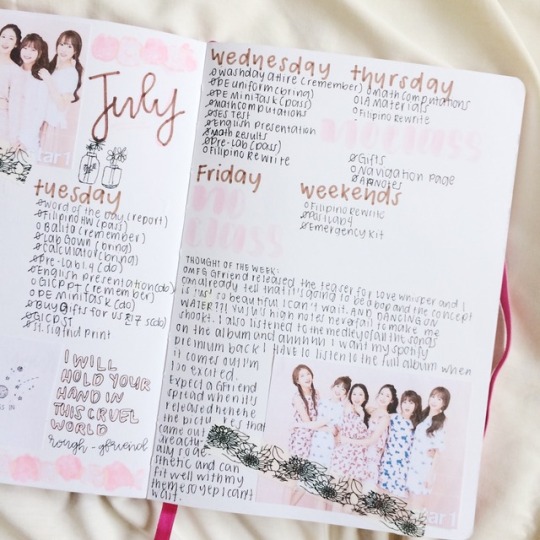 July
tuesday
word of the day (report)
Filipino HW (pass)
Balita (remember)
Lab Gown (bring)
calculator (bring)
Pre-Lab 1.4 (do)
English presentation (do)
GICPPT (remember)
PE Mini Task (do)
Buy Gifts for us
GICPST
print
I WILL
HOLD YOUR
HAND IN
THIS CRUEL
WORLD
rough - gfriend
wednesday
washday attire (remember)
PE uniform (bring)
PE Mini Task (pass)
Math computations
Test
English Presentation
Math Results
Pre-Lab (pass)
Filipino Rewrite
thursday
Math computations
IA Materials
Filipino Rewrite
no class
Gifts
Navigation page
AP Notes
Friday
no
class
weekends
Filipino Rewrite
Emergency Kit
THOUGHT OF THE WEEK:
OMFG Gfriend released the teaser for LOVE whisper and I
can already tell that it's going to be a bop and the concept
is just so beautiful I can't wait. AND DANCING ON
WATER??! Yuju's high notes never fail to make me
shook! I also listened to the medley of all the songs
on the album and ahhhhh I want my spotify
premium back I have to listen to the full album when
it comes out I'm
too excited.
Expect a Gfriend
spread when it's
released hehe the
came out
fit well with my
theme so yep I can't
wait.